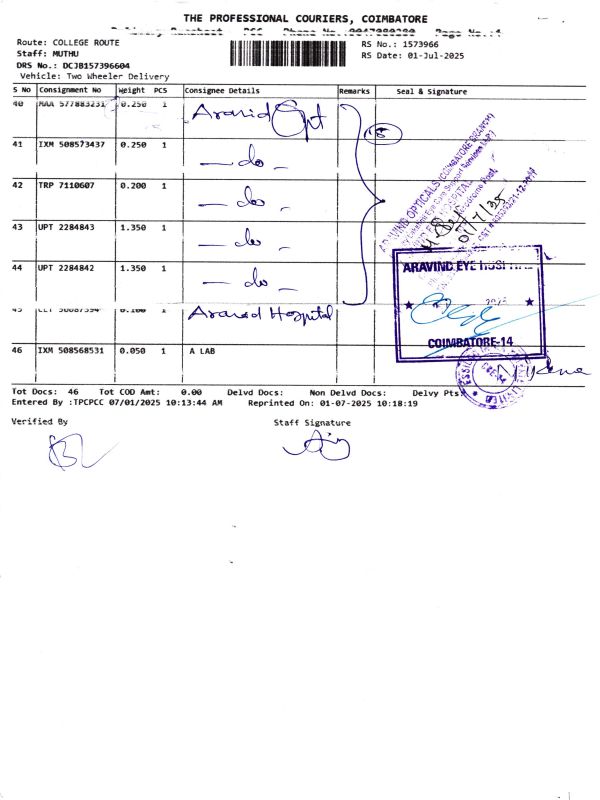 THE PROFESSIONAL COURIERS, COIMBATORE
Route: COLLEGE ROUTE
Staff: MUTHU
DRS No.: DCJB157396604
Vehicle: Two Wheeler Delivery
RS No.: 1573966
RS Date: 01-Jul-2025
S No Consignment No Weight PCS Consignee Details Remarks Seal & Signature
40 MAA 577883231 0.250 1 Aravind Opt
41 IXM 508573437 0.250 1 - do -
42 TRP 7110607 0.200 1 - do -
43 UPT 2284843 1.350 1 - do -
44 UPT 2284842 1.350 1 - do -
45 0.100 1 Aravind Hospital
46 IXM 508568531 0.050 1 A LAB
5
ARAVIND OPTICALS (COIMBATORE BRANCH)
01/7/25
ARAVIND EYE HOSPITAL
COIMBATORE-14
Tot Docs: 46 Tot COD Amt: 0.00 Delvd Docs: Non Delvd Docs: Delvy Pts:
Entered By :TPCPCC 07/01/2025 10:13:44 AM Reprinted On: 01-07-2025 10:18:19
Verified By Staff Signature